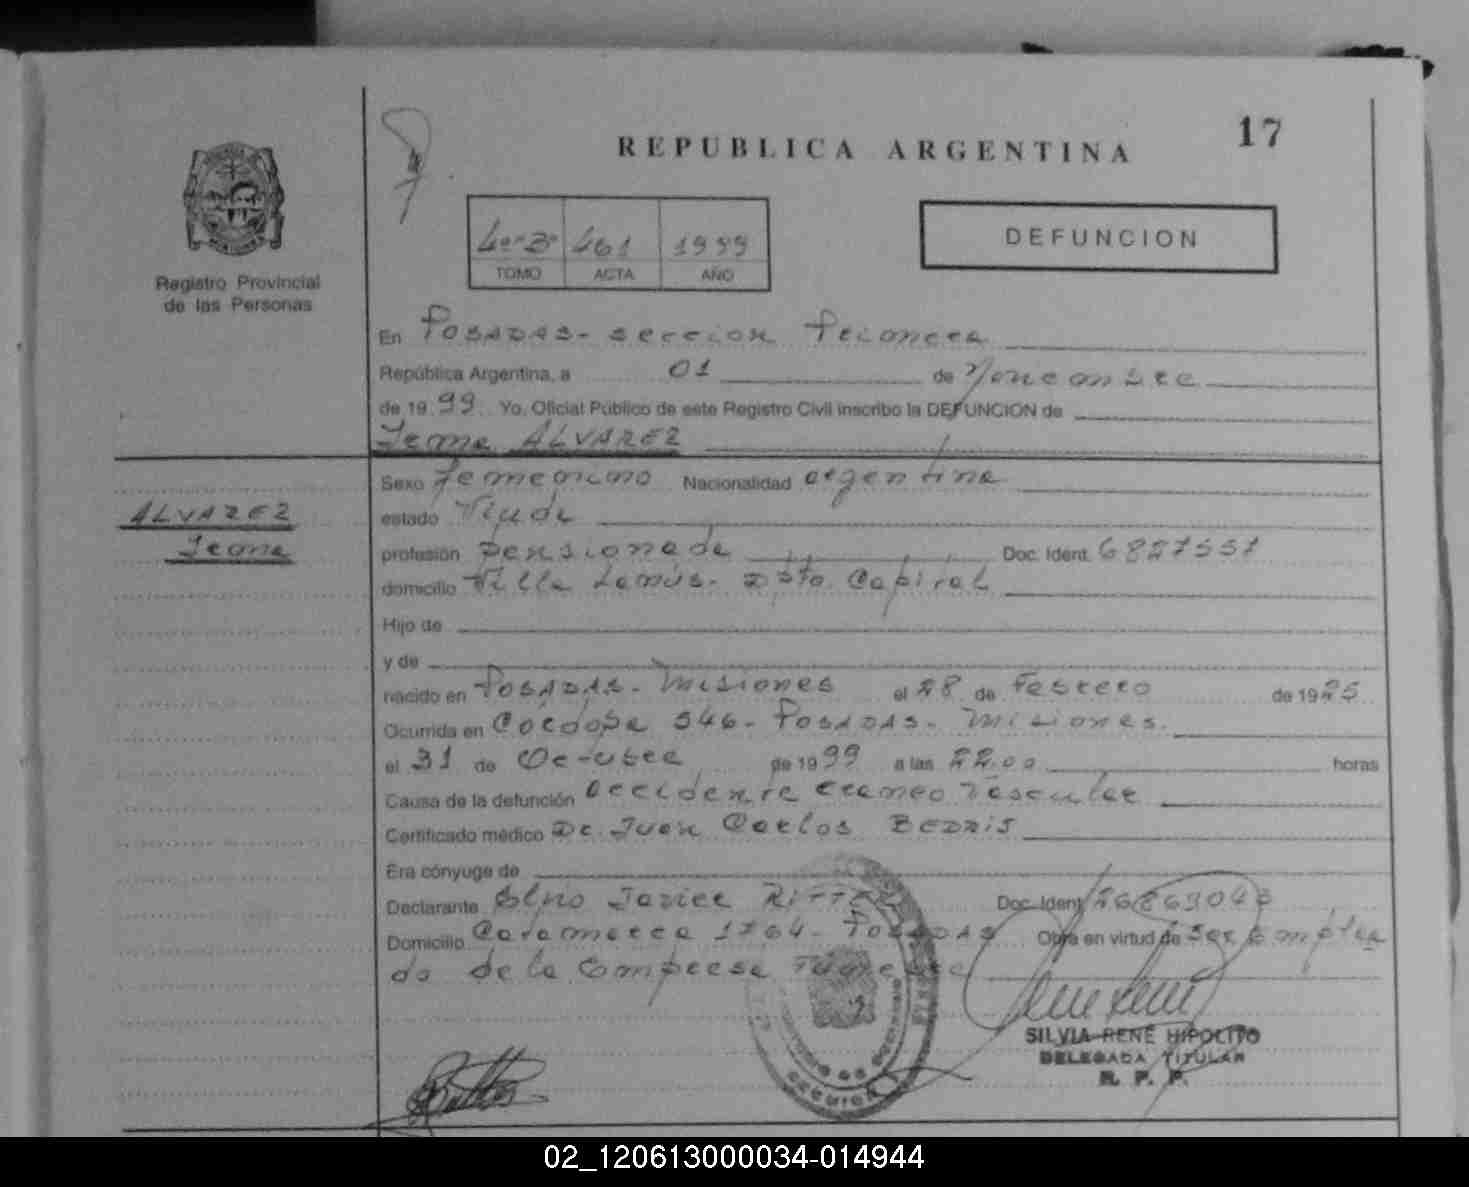 17
REPUBLICA ARGENTINA
DEFUNCION
4º"B" 461 1999
TOMO ACTA AÑO
Registro Provincial
de las Personas
En POSADAS - Seccion Primera
República Argentina, a 01 de Noviembre
de 1999. Yo, Oficial Público de este Registro Civil inscribo la DEFUNCION de
Irma ALVAREZ
ALVAREZ
Irma
Sexo femenino Nacionalidad argentina
estado Viuda
profesión pensionada Doc. Ident. 6827557
domicilio Villa Lanús - Dpto. Capital
Hijo de
y de
nacido en POSADAS - Misiones el 28 de Febrero de 1925
Ocurrida en Cordoba 546 - POSADAS - Misiones.
el 31 de Octubre de 1999 a las 22.00 horas
Causa de la defunción accidente craneo vascular
Certificado médico Dr. Juan Carlos
Era cónyuge de
Declarante Javier RITTER Doc. Ident. 26869043
Domicilio Catamarca 1764 - POSADAS Obra en virtud de ser emplea
do de la Empresa
SILVIA RENÉ HIPOLITO
DELEGADA TITULAR
R. P. P.
02_120613000034-014944